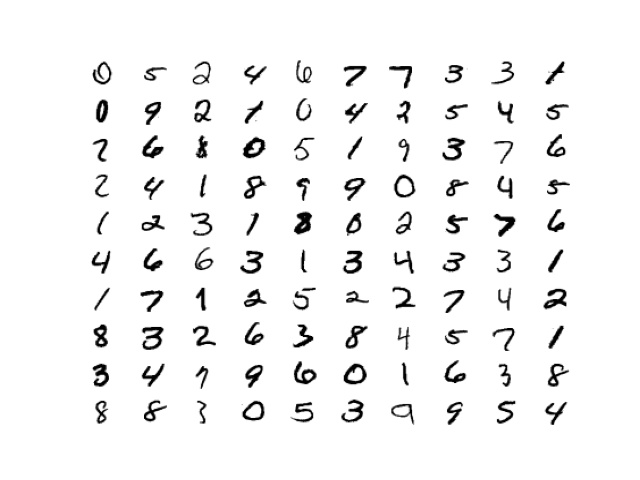 0 5 2 4 6 7 7 3 3 1
0 9 2 1 0 4 2 5 4 5
2 6 8 0 5 1 9 3 7 6
2 4 1 8 9 9 0 8 4 5
1 2 3 1 8 0 2 5 7 6
4 6 6 3 1 3 4 3 3 1
1 7 1 2 5 2 2 7 4 2
8 3 2 6 3 8 4 5 7 1
3 4 7 9 6 0 1 6 3 8
8 8 3 0 5 3 9 9 5 4